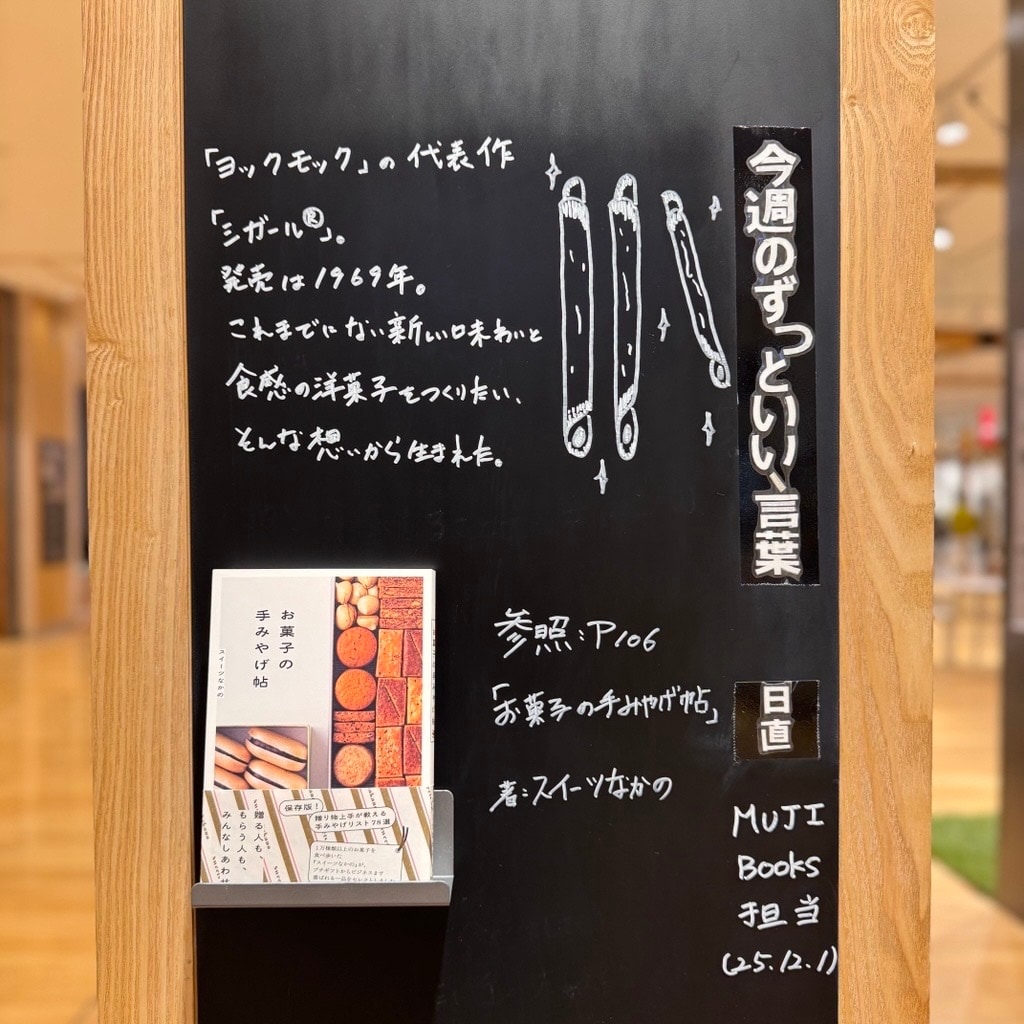 今週のずっといい、言葉
「ヨックモック」の代表作
「シガール®」。
発売は1969年。
これまでにない新しい味わいと
食感の洋菓子をつくりたい、
そんな想いから生まれた。
参照:P106
「お菓子の手みやげ帖」
著:スイーツなかの
日直
MUJI
Books
担当
(25.12.1)
お菓子の
手みやげ帖
スイーツなかの
保存版!
贈り物上手が教える
手みやげリスト78選
贈る人も、
もらう人も、
みんなしあわせ
1万種類以上のお菓子を
食べ歩いた
「スイーツなかの」が、
プチギフトからビジネスまで